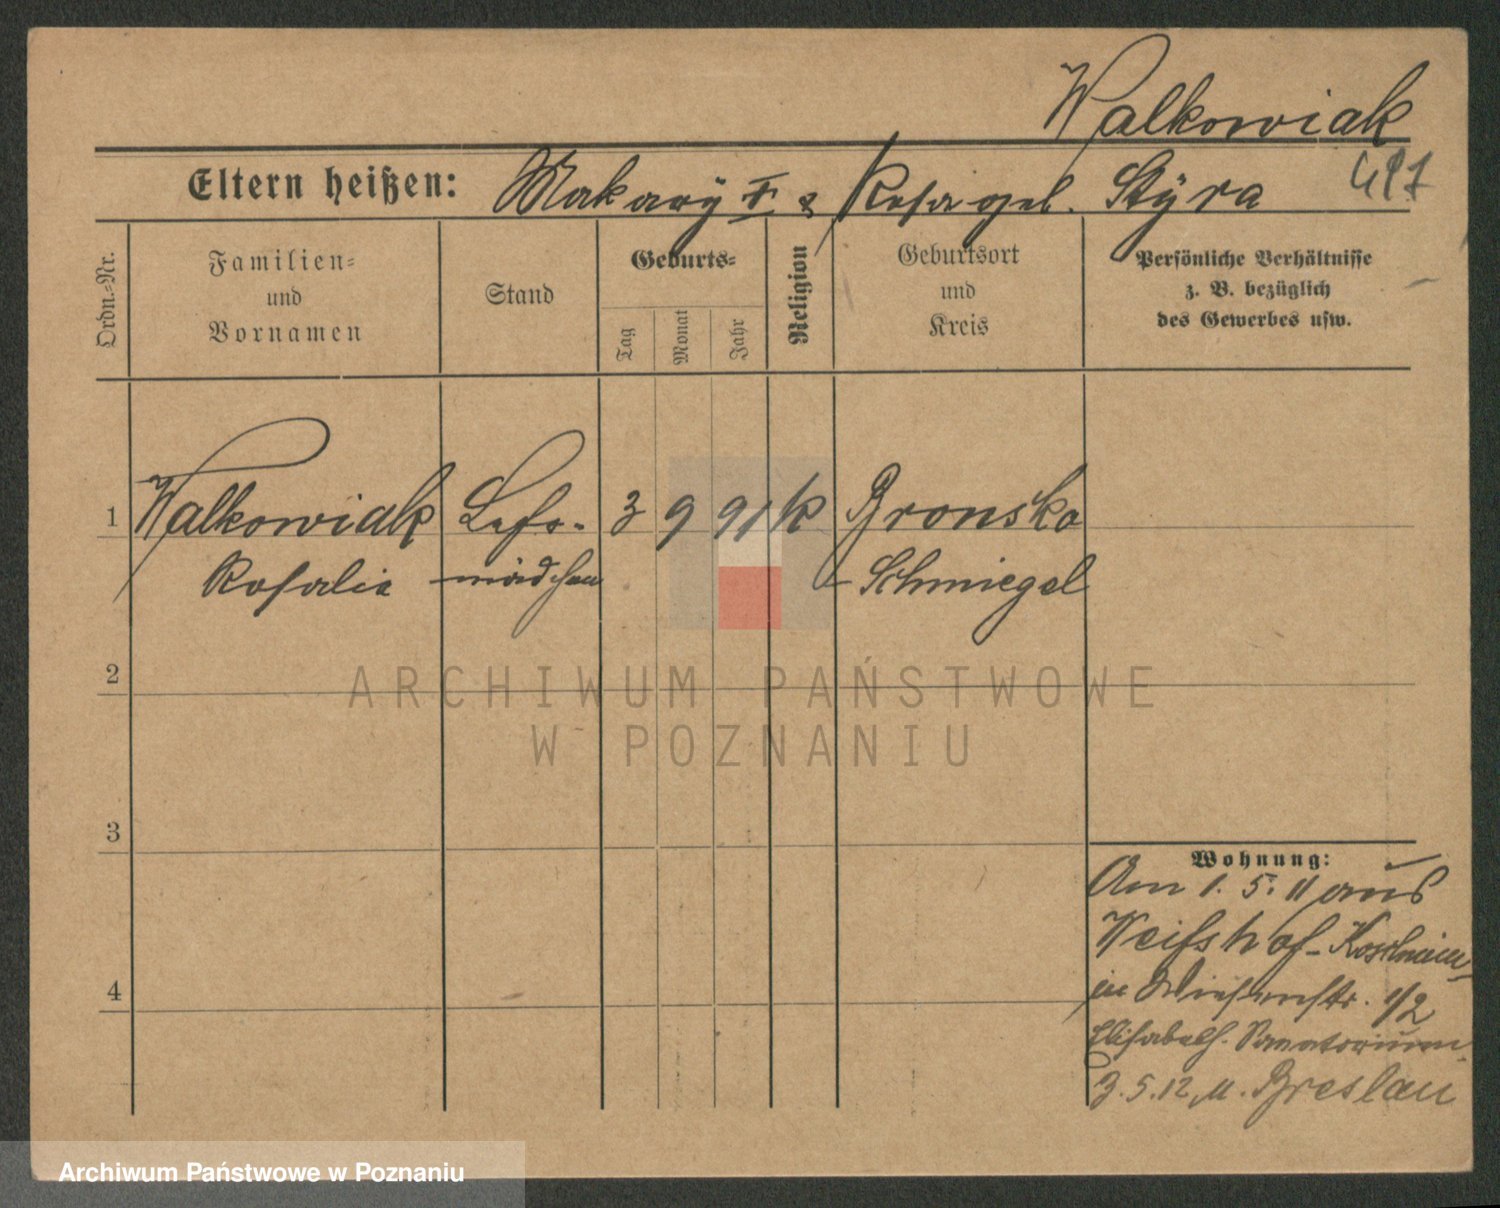 Walkowiak
Eltern heißen: Makary † & Rosa geb. Styra
Ordn.-Nr.
Familien-
und
Vornamen
Stand
Geburts-
Tag
Monat
Jahr
Religion
Geburtsort
und
Kreis
Persönliche Verhältnisse
z. B. bezüglich
des Gewerbes usw.
1 Walkowiak 3 9 91 k Bronsko
Rosalie mädchen Schmiegel
2
3
4
Wohnung:
Am 1. 5. 11 aus
Weisshof-Koschmin
in Wiesenstr. 1/2
Elisabeth. Sanatorium
3. 5. 12, n. Breslau
ARCHIWUM PAŃSTWOWE
W POZNANIU
Archiwum Państwowe w Poznaniu